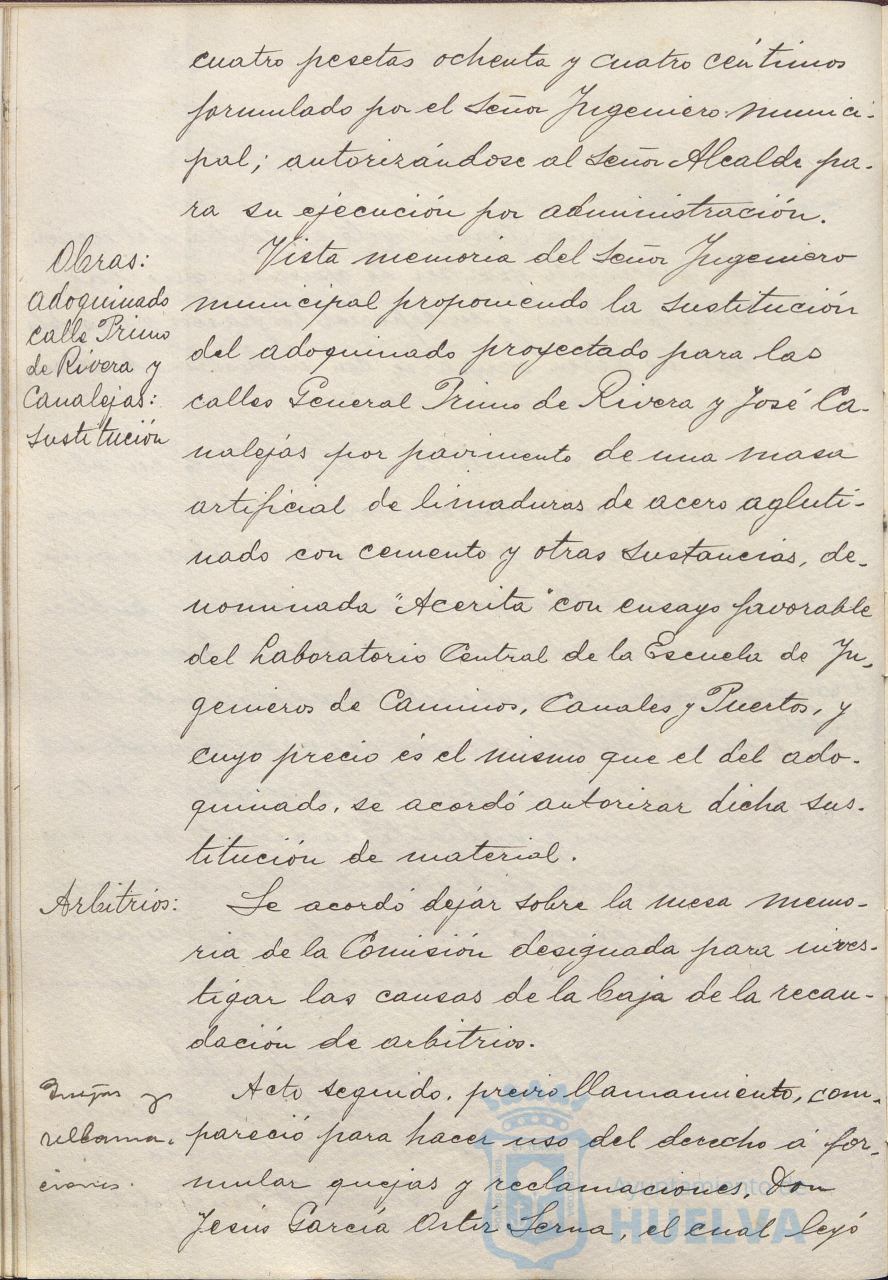 cuatro pesetas ochenta y cuatro céntimos
formulado por el Señor Ingeniero munici-
pal; autorizándose al Señor Alcalde pa-
ra su ejecución por administración.
Obras:
adoquinado
calle Primo
de Rivera y
Canalejas:
sustitución
Vista memoria del Señor Ingeniero
municipal proponiendo la sustitución
del adoquinado proyectado para las
calles General Primo de Rivera y José Ca-
nalejas por pavimento de una masa
artificial de limaduras de acero agluti-
nado con cemento y otras sustancias, de-
nominada "Acerita" con ensayo favorable
del Laboratorio Central de la Escuela de In-
genieros de Caminos, Canales y Puertos, y
cuyo precio és el mismo que el del ado-
quinado, se acordó autorizar dicha sus-
titución de material.
Arbitrios:
Se acordó dejar sobre la mesa memo-
ria de la Comisión designada para inves-
tigar las causas de la baja de la recau-
dación de arbitrios.
Quejas y
reclama-
ciones.
Acto seguido, previo llamamiento, com-
pareció para hacer uso del derecho á for-
mular quejas y reclamaciones, Don
Jesús García Serna, el cual leyó
Ayuntamiento de
HUELVA